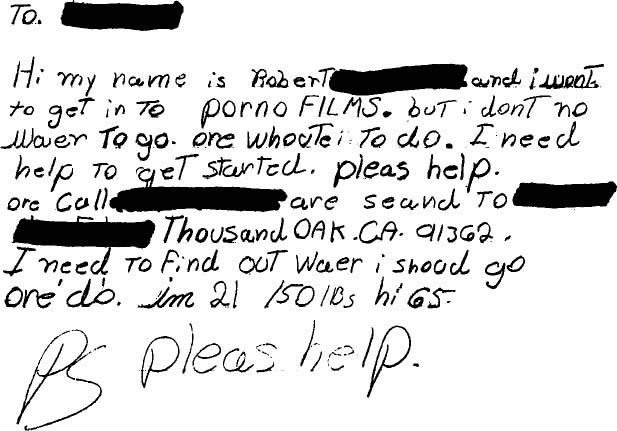 To.
Hi my name is Robert and i wont
to get in To porno FILMS. buT i donT no
Waer To go. ore whoute i To do. I need
help To geT started. pleas help.
ore Call are seand To
Thousand OAK. CA. 91362.
I need To Find ouT Waer i shoud go
ore do. im 21 150 lbs hi 65.
PS pleas help.